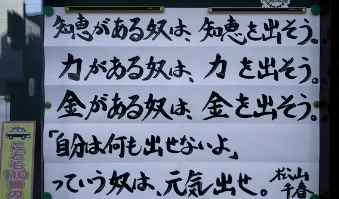 知恵がある奴は、知恵を出そう。
力がある奴は、力を出そう。
金がある奴は、金を出そう。
「自分は何も出せないよ」
っていう奴は、元気出せ。
松山千春
こども110番の